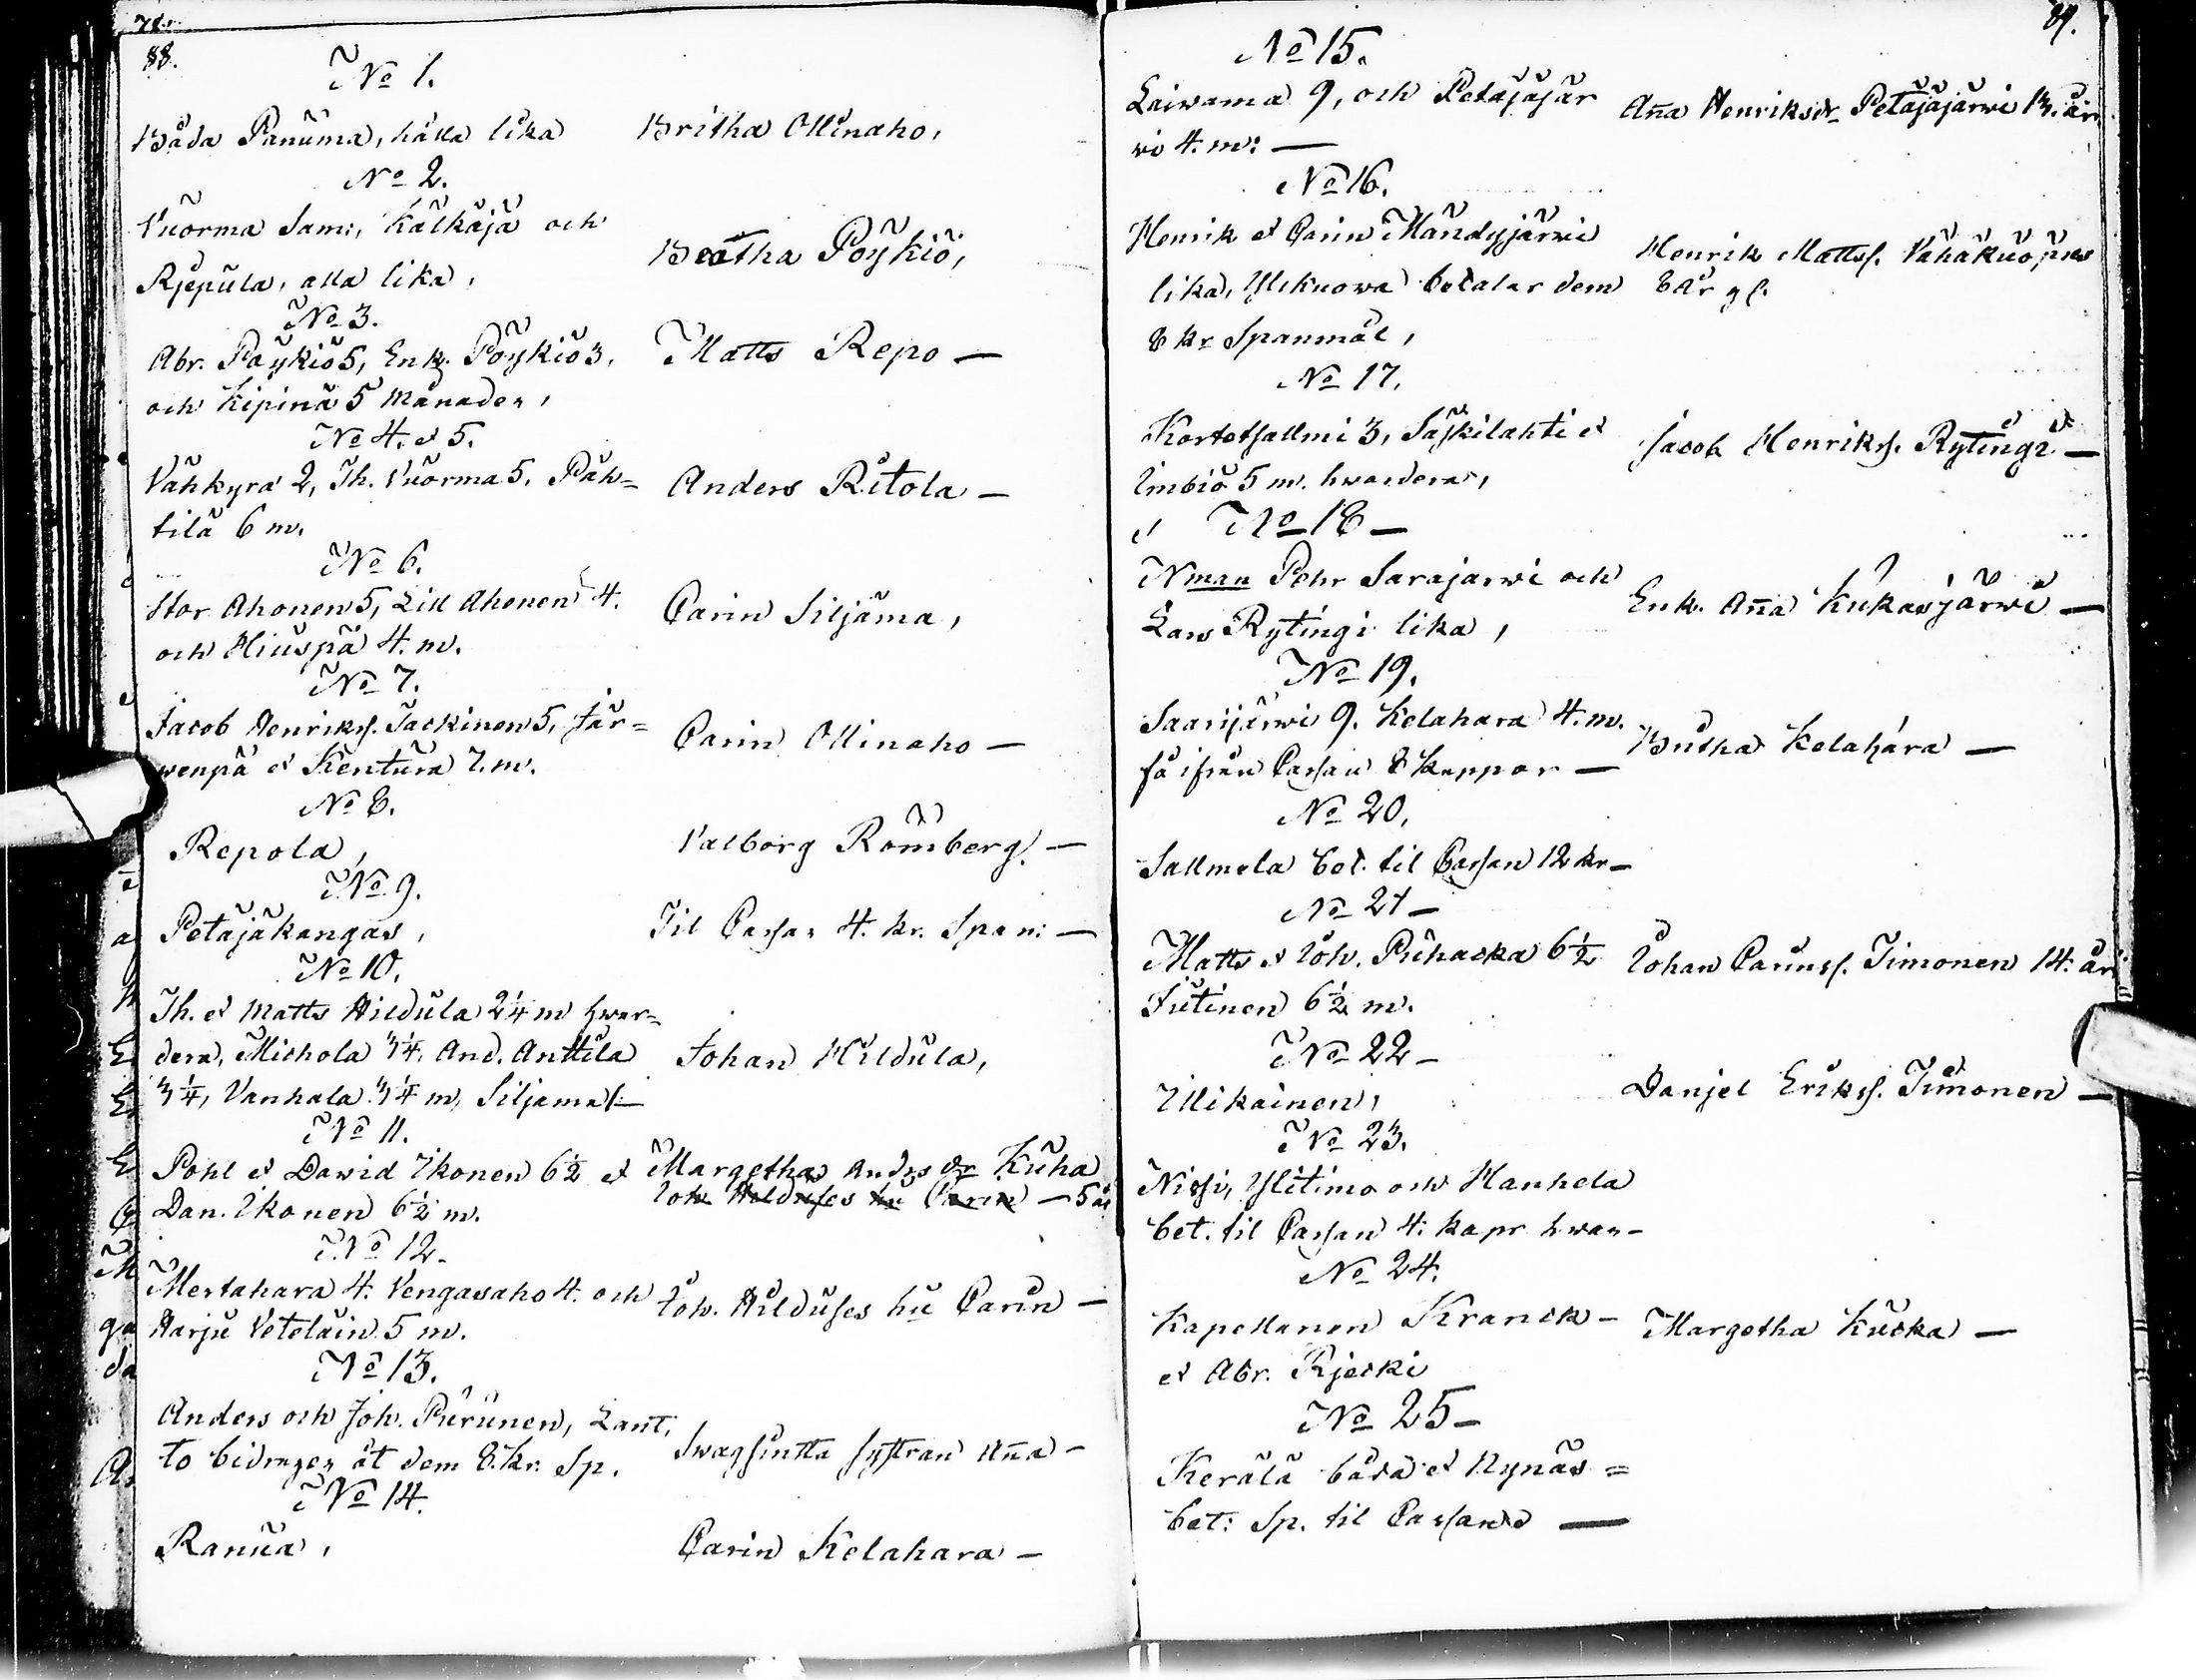 88.
No 1.
Båda Panuma, hålla lika
Britha Ollinaho,
No 2.
Vuorma Sam:, Kälkäjä och
Rjepula, alla lika,
Beatha Pöykiö,
No 3.
Abr. Pöykiö 5, Enk. Pöykiö 3,
och Kipinä 5 månader,
Matts Repo —
No 4. et 5.
Vähkyrä 2, Th. Vuorma 5, Päh=
tilä 6 m.
Anders Ritola —
No 6.
Stor Ahonen 5, Lill Ahonen 4.
och Hiuspä 4. m.
Carin Siljama,
No 7.
Jacob Henrikss. Jackinen 5, Jär=
wenpä et Kentura 7. m.
Carin Ollinaho —
No 8.
Repola,
Valborg Römberg, —
No 9.
Petäjäkangas,
Til Cassan 4. kr. Span: —
No 10.
Th. et Matts Hildula 2 1/4 m hwar=
dera, Michola 3 1/4, And. Anttila
3 1/4, Vanhala 3 1/4 m, Siljama 1 —
Johan Hildula,
No 11.
Pohl et David Ikonen 6 1/2 et
Dan. Ikonen 6 1/2 m.
Margetha Andrs dr Kuha
Joh. Hilduses hu Carin — 5 år
No 12.
Mertahara 4. Vengasaho 4. och
Harju Veteläin 5 m.
Joh. Hilduses hu Carin —
No 13.
Anders och Joh. Purunen, Lant,
to bidrager åt dem 8. kr. Sp.
Swagsinta systran Aña —
No 14.
Ranua,
Carin Kelahara —
89.
No 15.
Laiwama 9, och Petäjäjär
wi 4. m: —
Aña Henriksdr Petäjäjärwi 13. år
No 16.
Henrik et Carin Mändyjärwi
lika, Ylikuowa betalar dem
8 kr Spanmål,
Henrik Mattss. Vähäkuopus
8 år gl.
No 17.
Kortetsallmi 3, Säskilahti et
Imbiö 5 m. hwardera,
Jacob Henrikss. Rytingi —
No 18 —
Nman Pehr Sarajarwi och
Lars Rytingi lika,
Enk. Aña Kukasjärwi —
No 19.
Saarijärwi 9. Kelahara 4. m.
få ifrån Cassan 8 kappar —
Britha Kelahara —
No 20.
Sallmela bet. til Cassan 12 kr —
No 21 —
Matts et Joh. Puhacka 6 1/2
Jutinen 6 1/2 m.
Johan Carinss. Timonen 14. år
No 22 —
Illikainen,
Danjel Erikss. Timonen —
No 23.
Nissi, Ylitimo och Hanhela
bet. til Cassan 4. kapr hwar —
No 24.
Kapellanen Kranck —
et Abr. Rjecki
Margetha Kuska —
No 25 —
Kerälä båda et Nynäs =
bet: Sp. til Cassan —